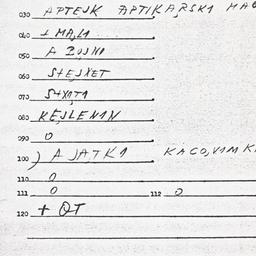 030 APTEJK APTIKARSKI MAG
040 + MAJLA
050 A ZOJNI
060 S+EJXET
070 S+XATA
080 KEJLENAN
090 O
100 ) A JATKA KACO,VAMKI
110 O
111 O 112 O
120 + QT